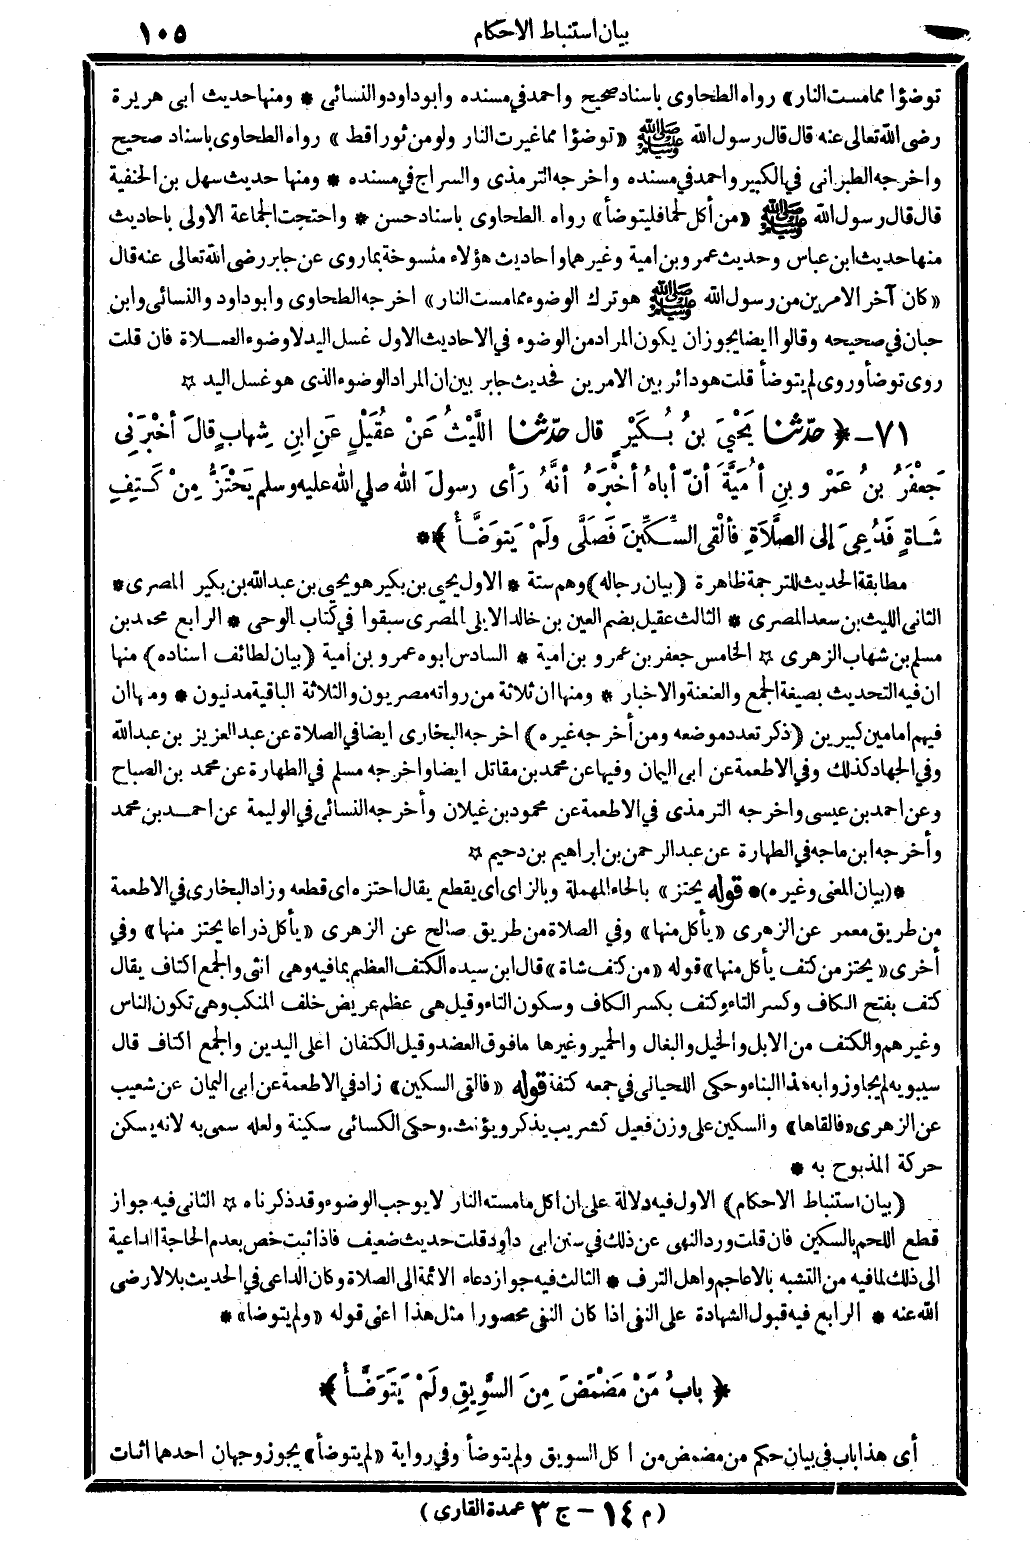 بيان استنباط الاحكام ١٠٥
توضؤا مما مست النار» رواه الطحاوى باسناد صحيح واحمد في مسنده وابو داود والنسائى * ومنها حديث ابى هريرة
رضى الله تعالى عنه قال قال رسول الله ﷺ «توضؤا مما غيرت النار ولو من ثور اقط» رواه الطحاوى باسناد صحيح
واخرجه الطبرانى في الكبير واحمد في مسنده واخرجه الترمذى والسراج في مسنده * ومنها حديث سهل بن الحنفية
قال قال رسول الله ﷺ «من أكل لحما فليتوضأ» رواه الطحاوى باسناد حسن * واحتجت الجماعة الاولى باحاديث
منها حديث ابن عباس وحديث عمرو بن امية وغيرهما واحاديث هؤلاء منسوخة بما روى عن جابر رضى الله تعالى عنه قال
«كان آخر الامرين من رسول الله ﷺ هو ترك الوضوء مما مست النار» اخرجه الطحاوى وابو داود والنسائى وابن
حبان في صحيحه وقالوا ايضا يجوز ان يكون المراد من الوضوء في الاحاديث الاول غسل اليد لا وضوء الصلاة فان قلت
روى توضأ وروى لم يتوضأ قلت هو دائر بين الامرين فحديث جابر بين ان المراد الوضوء الذى هو غسل اليد ☆
٧١ - ﴿ حدّثنا يَحْيَى بنُ بُكَيْرٍ قال حدّثنا اللَّيْثُ عَنْ عُقَيْلٍ عَنِ ابنِ شِهابٍ قالَ أخْبَرَنِي
جَعْفَرُ بنُ عَمْرِو بنِ أُمَيَّةَ أنّ أباهُ أخْبَرَهُ أنَّهُ رَأى رسولَ الله صلي الله عليه وسلم يَحْتَزُّ مِنْ كَتِفِ
شَاةٍ فَدُعِيَ إلى الصَّلاَةِ فألْقى السِّكِّينَ فَصَلَّى ولَمْ يَتوضَّأْ ﴾ *
مطابقة الحديث للترجمة ظاهرة (بيان رجاله) وهم ستة * الاول يحيى بن بكير هو يحيى بن عبد الله بن بكير المصرى *
الثانى الليث بن سعد المصرى * الثالث عقيل بضم العين بن خالد الايلى المصرى سبقوا في كتاب الوحى * الرابع محمد بن
مسلم بن شهاب الزهرى ☆ الخامس جعفر بن عمرو بن امية * السادس ابوه عمرو بن امية (بيان لطائف اسناده) منها
ان فيه التحديث بصيغة الجمع والعنعنة والاخبار * ومنها ان ثلاثة من رواته مصريون والثلاثة الباقية مدنيون * ومنها ان
فيهم امامين كبيرين (ذكر تعدد موضعه ومن أخرجه غيره) اخرجه البخارى ايضا في الصلاة عن عبد العزيز بن عبد الله
وفي الجهاد كذلك وفي الاطعمة عن ابى اليمان وفيها عن محمد بن مقاتل ايضا واخرجه مسلم في الطهارة عن محمد بن الصباح
وعن احمد بن عيسى واخرجه الترمذى في الاطعمة عن محمود بن غيلان وأخرجه النسائى في الوليمة عن احمد بن محمد
وأخرجه ابن ماجه في الطهارة عن عبد الرحمن بن ابراهيم بن دحيم ☆
*(بيان المعنى وغيره)* قوله يحتز» بالحاء المهملة وبالزاى اى يقطع يقال احتزه اى قطعه وزاد البخارى في الاطعمة
من طريق معمر عن الزهرى «يأكل منها» وفي الصلاة من طريق صالح عن الزهرى «يأكل ذراعا يحتز منها» وفي
أخرى «يحتز من كتف يأكل منها» قوله «من كتف شاة» قال ابن سيده الكتف العظم بما فيه وهى انثى والجمع اكتاف يقال
كتف بفتح الكاف وكسر التاء وكتف بكسر الكاف وسكون التاء وقيل هى عظم عريض خلف المنكب وهى تكون للناس
وغيرهم والكتف من الابل والخيل والبغال والحمير وغيرها ما فوق العضد وقيل الكتفان اعلى اليدين والجمع اكتاف قال
سيبويه لم يجاوزوا به هذا البناء وحكى اللحيانى في جمعه كتفة قوله «فالقى السكين» زاد في الاطعمة عن ابى اليمان عن شعيب
عن الزهرى «فالقاها» والسكين على وزن فعيل كشريب يذكر ويؤنث. وحكى الكسائى سكينة ولعله سمى به لانه يسكن
حركة المذبوح به *
(بيان استنباط الاحكام) الاول فيه دلالة على ان اكل ما مسته النار لا يوجب الوضوء وقد ذكرناه ☆ الثانى فيه جواز
قطع اللحم بالسكين فان قلت ورد النهى عن ذلك في سنن ابى داود قلت حديث ضعيف فاذا ثبت خص بعدم الحاجة الداعية
الى ذلك لما فيه من التشبه بالاعاجم واهل الترف * الثالث فيه جواز دعاء الائمة الى الصلاة وكان الداعى في الحديث بلالا رضى
الله عنه * الرابع فيه قبول الشهادة على النفى اذا كان النفى محصورا مثل هذا اعنى قوله «ولم يتوضا» *
﴿ بابُ مَنْ مَضْمَضَ مِنَ السَّوِيقِ ولَمْ يَتَوَضَّأْ ﴾
أى هذا باب في بيان حكم من مضمض من اكل السويق ولم يتوضأ وفي رواية «لم يتوضأ» يجوز وجهان احدهما اثبات
(م ١٤ - ج ٣ عمدة القارى)